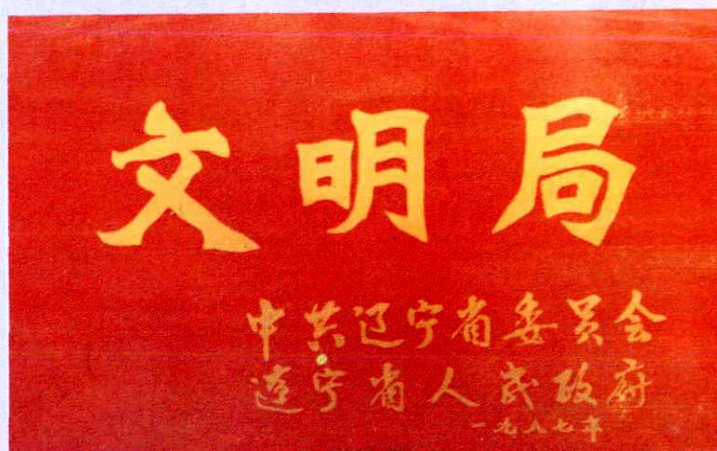 文明局
中共辽宁省委员会
辽宁省人民政府
一九八七年